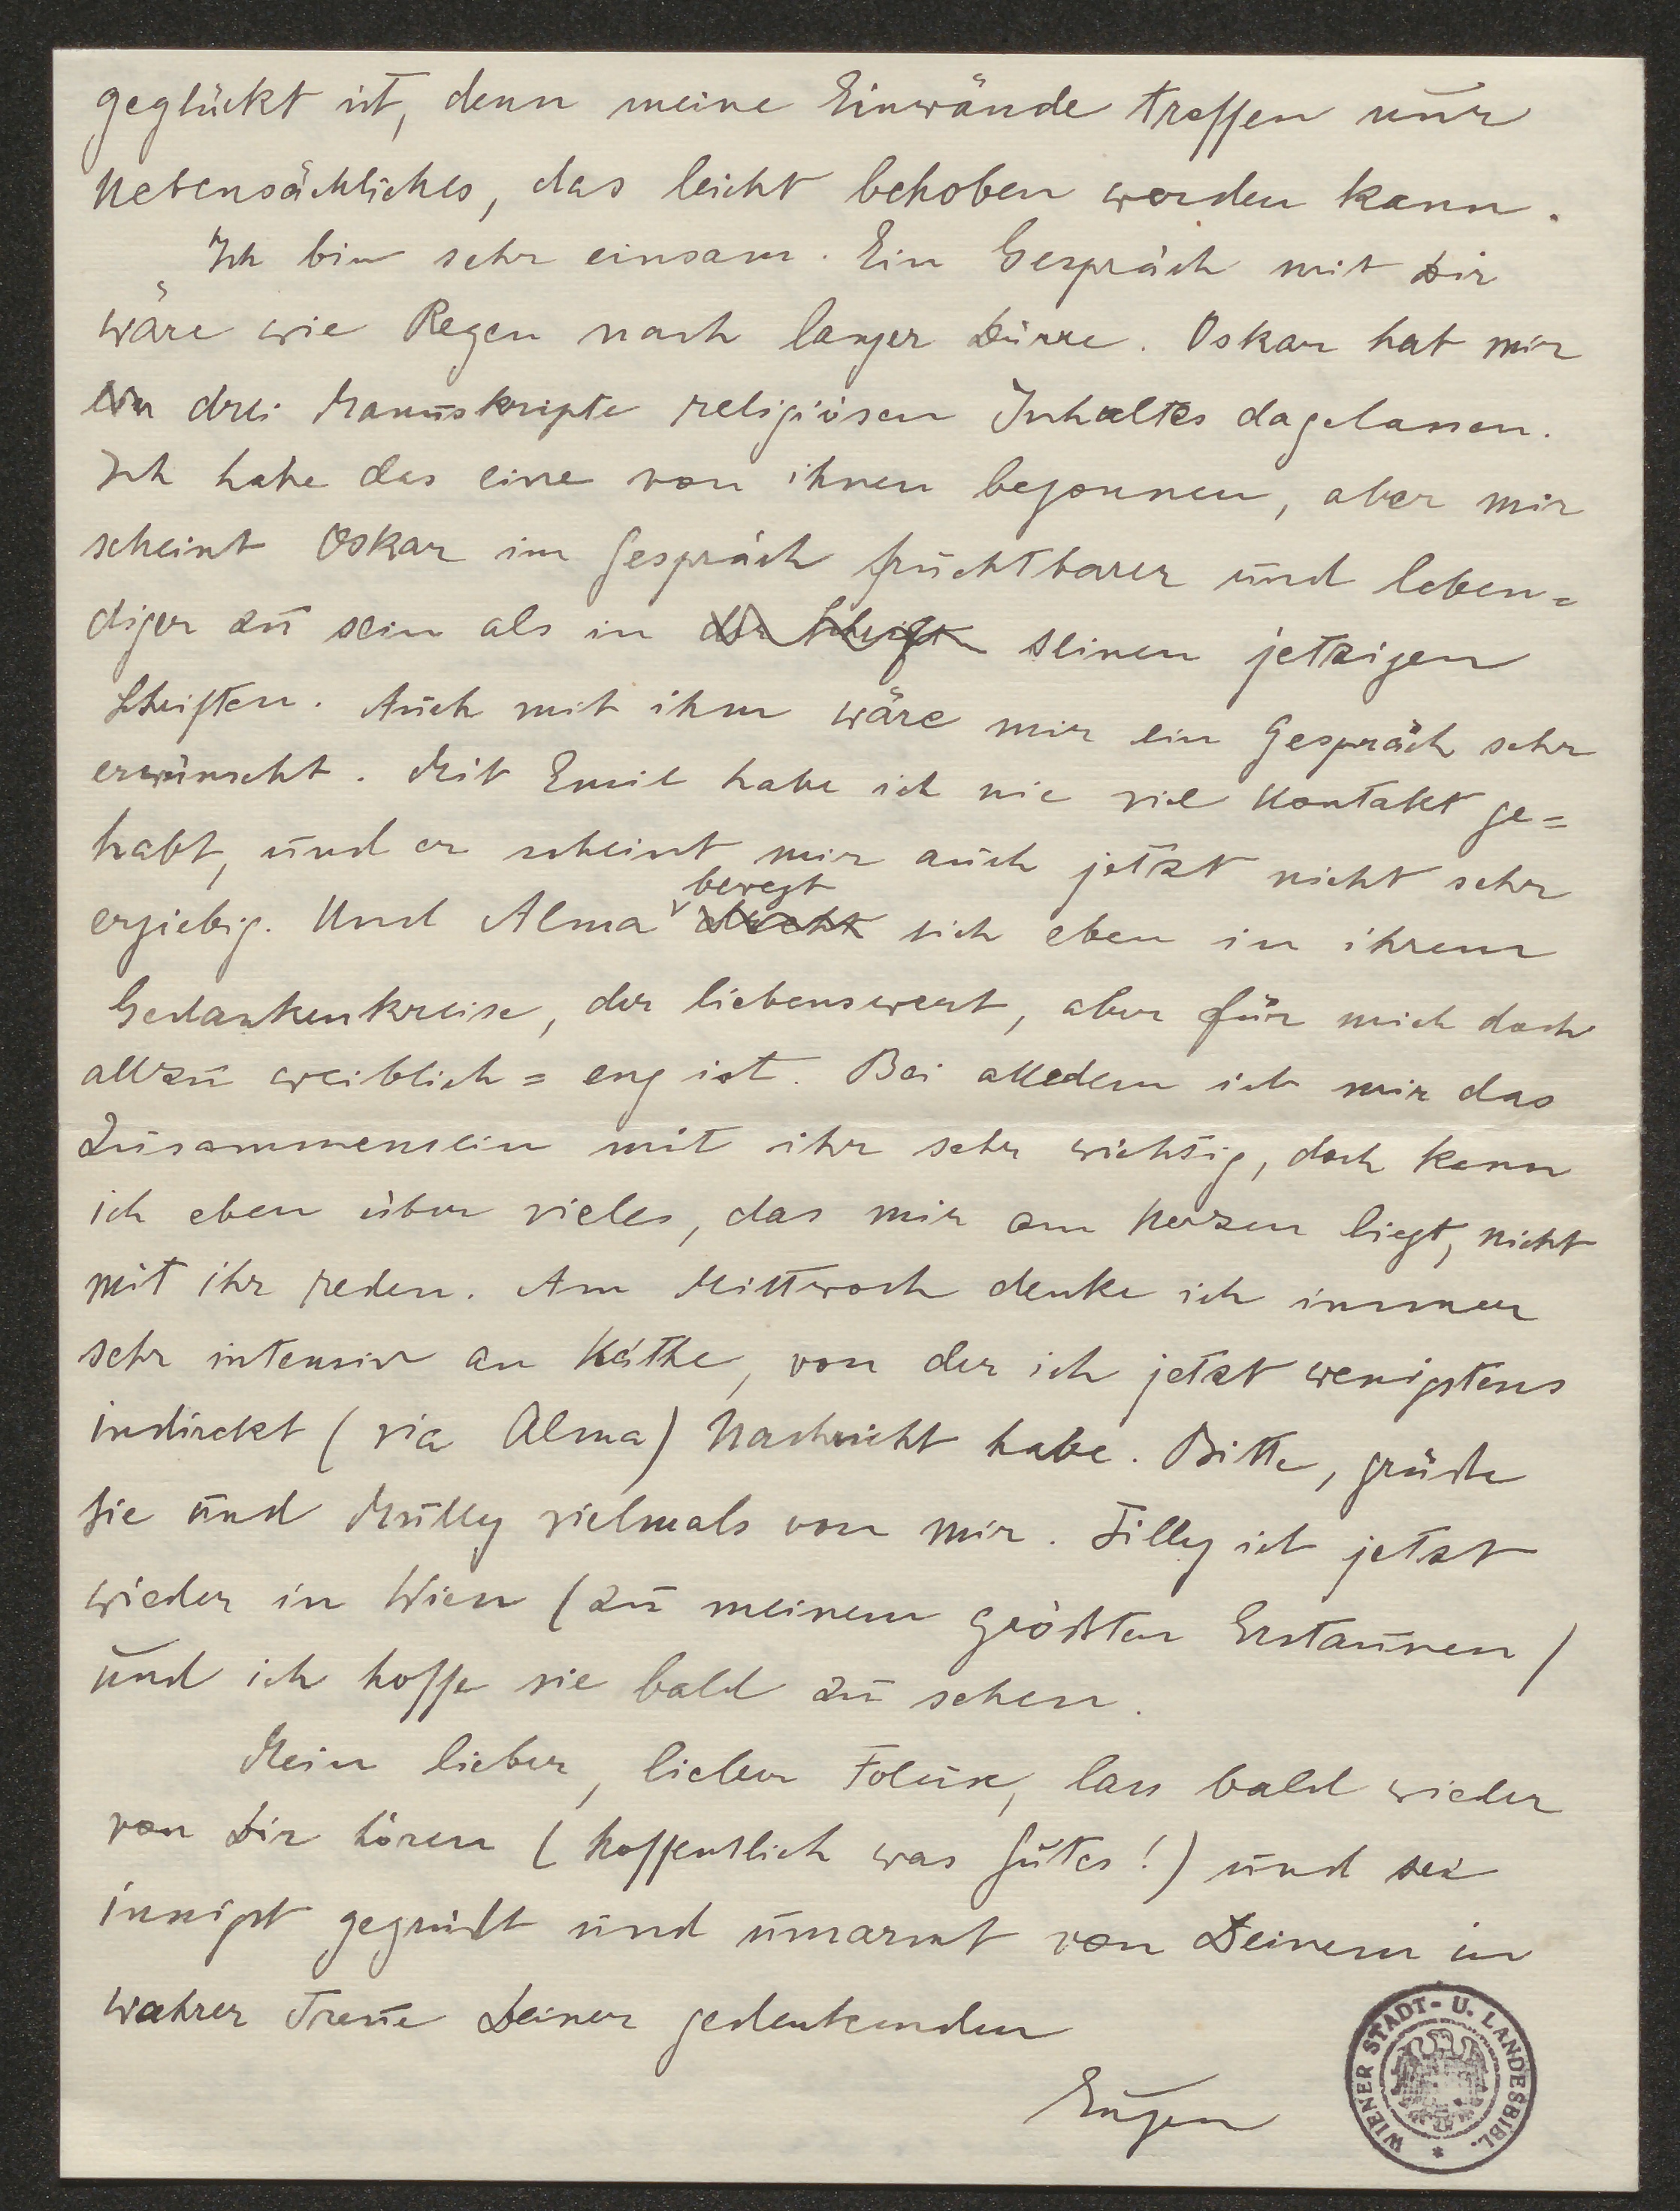 geglückt ist, denn meine Einwände treffen nur
Nebensächliches, das leicht behoben werden kann.
Ich bin sehr einsam. Ein Gespräch mit Dir
wäre wie Regen nach langer Dürre. Oskar hat mir
ein drei Manuskripte religiösen Inhaltes dagelassen.
Ich habe das eine von ihnen begonnen, aber mir
scheint Oskar im Gespräch fruchtbarer und leben=
diger zu sein als in der Schrift seinen jetzigen
Schriften. Auch mit ihm wäre mir ein Gespräch sehr
erwünscht. Mit Emil habe ich nie viel Kontakt ge=
habt, und er scheint mir auch jetzt nicht sehr
bewegt
ergiebig. Und Alma dreht sich eben in ihrem
Gedankenkreise, der liebenswert, aber für mich doch
allzu weiblich=eng ist. Bei alledem ist mir das
Zusammensein mit ihr sehr wichtig, doch kann
ich eben über vieles, das mir am Herzen liegt, nicht
mit ihr reden. Am Mittwoch denke ich immer
sehr intensiv an Käthe, von der ich jetzt wenigstens
indirekt (via Alma) Nachricht habe. Bitte, grüße
sie und Mully vielmals von mir. Tilly ist jetzt
wieder in Wien (zu meinem größten Erstaunen)
und ich hoffe sie bald zu sehen.
Mein lieber, lieber, lass bald wieder
von Dir hören (hoffentlich was Gutes!) und sei
innigst gegrüßt und umarmt von Deinem in
wahrer Treue Deiner gedenkenden
Eugen
WIENER STADT- U. LANDESBIBL.